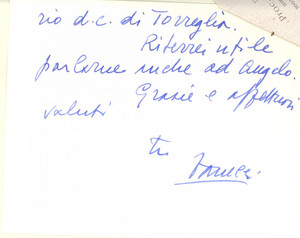 rio d.c. di Torreglia.
Riterrei utile
parlarne anche ad Angelo.
Grazie e affettuosi
saluti
tu